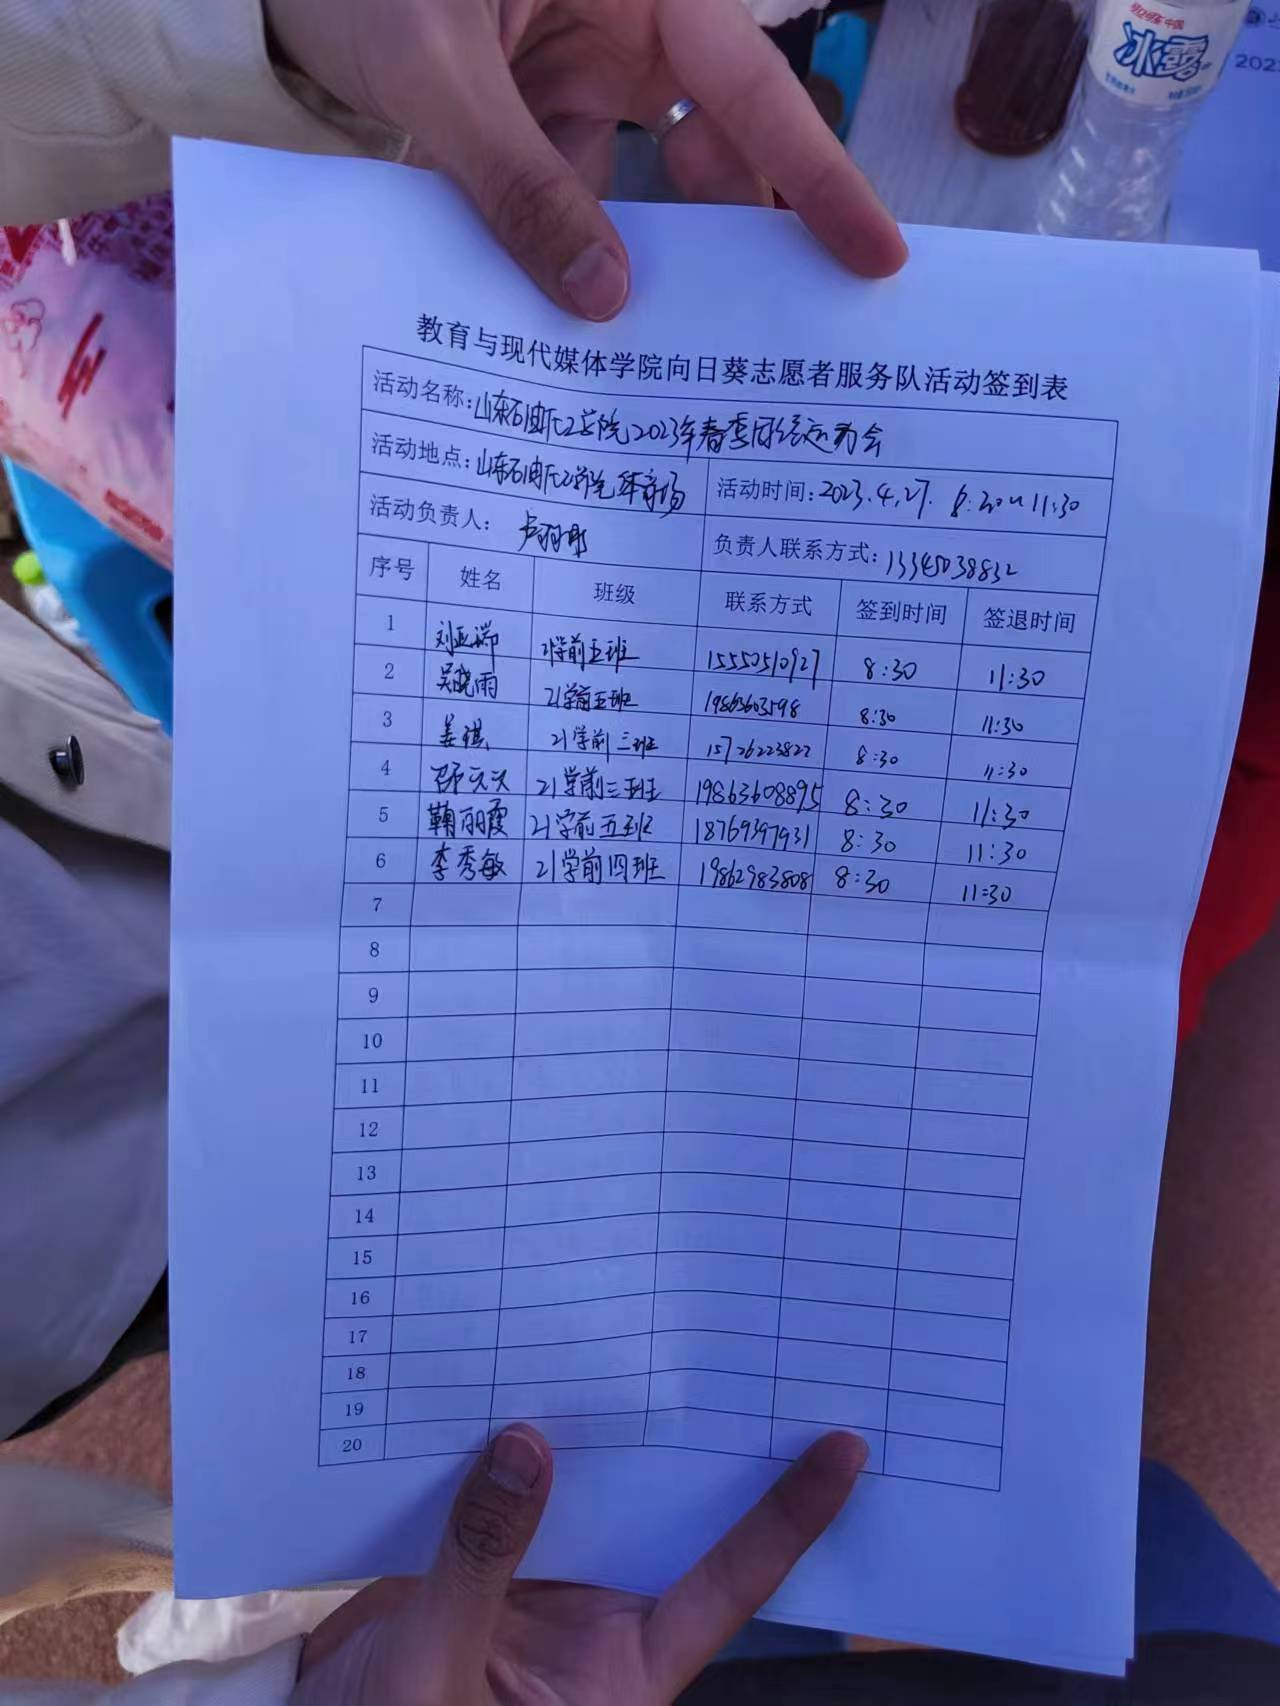 冰露
202
教育与现代媒体学院向日葵志愿者服务队活动签到表
活动名称：山东石油化工学院2023年春季田径运动会
活动地点：山东石油化工学院体育场 活动时间：2023.4.27. 8:30~11:30
活动负责人： 负责人联系方式：13345038832
序号 姓名 班级 联系方式 签到时间 签退时间
1 刘亚瑞 21学前五班 15550510927 8:30 11:30
2 吴晓雨 21学前五班 19863603598 8:30 11:30
3 姜琪 21学前三班 15726223822 8:30 11:30
4 邵天天 21学前三班 19863608895 8:30 11:30
5 鞠丽霞 21学前五班 18769397931 8:30 11:30
6 李秀敏 21学前四班 19862983808 8:30 11:30
7
8
9
10
11
12
13
14
15
16
17
18
19
20